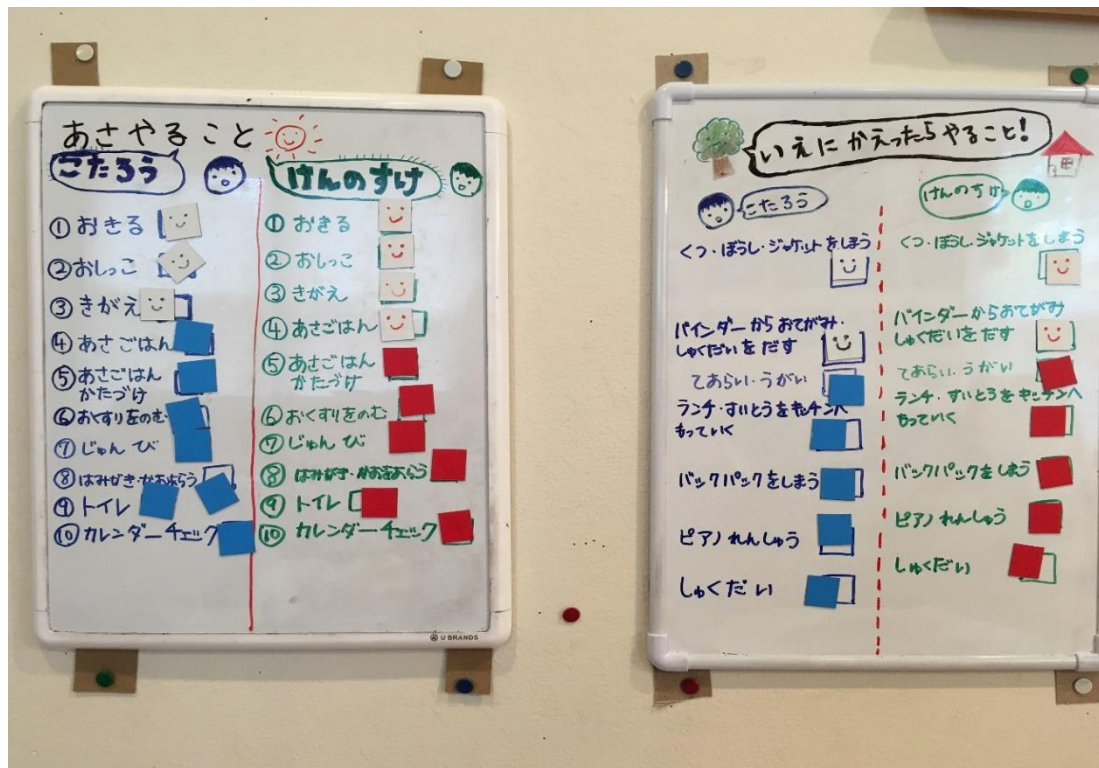 あさやること
こたろう
① おきる
② おしっこ
③ きがえ
④ あさごはん
⑤ あさごはん
かたづけ
⑥ おくすりをのむ
⑦ じゅんび
⑧ はみがき・かおあらう
⑨ トイレ
⑩ カレンダーチェック
けんのすけ
① おきる
② おしっこ
③ きがえ
④ あさごはん
⑤ あさごはん
かたづけ
⑥ おくすりをのむ
⑦ じゅんび
⑧ はみがき・かおをあらう
⑨ トイレ
⑩ カレンダーチェック
U BRANDS
いえにかえったらやること!
こたろう
くつ・ぼうし・ジャケットをしまう
バインダーからおてがみ・
しゅくだいをだす
てあらい・うがい
ランチ・すいとうをキッチンへ
もっていく
バックパックをしまう
ピアノれんしゅう
しゅくだい
けんのすけ
くつ・ぼうし・ジャケットをしまう
バインダーからおてがみ
しゅくだいをだす
てあらい・うがい
ランチ・すいとうをキッチンへ
もっていく
バックパックをしまう
ピアノれんしゅう
しゅくだい